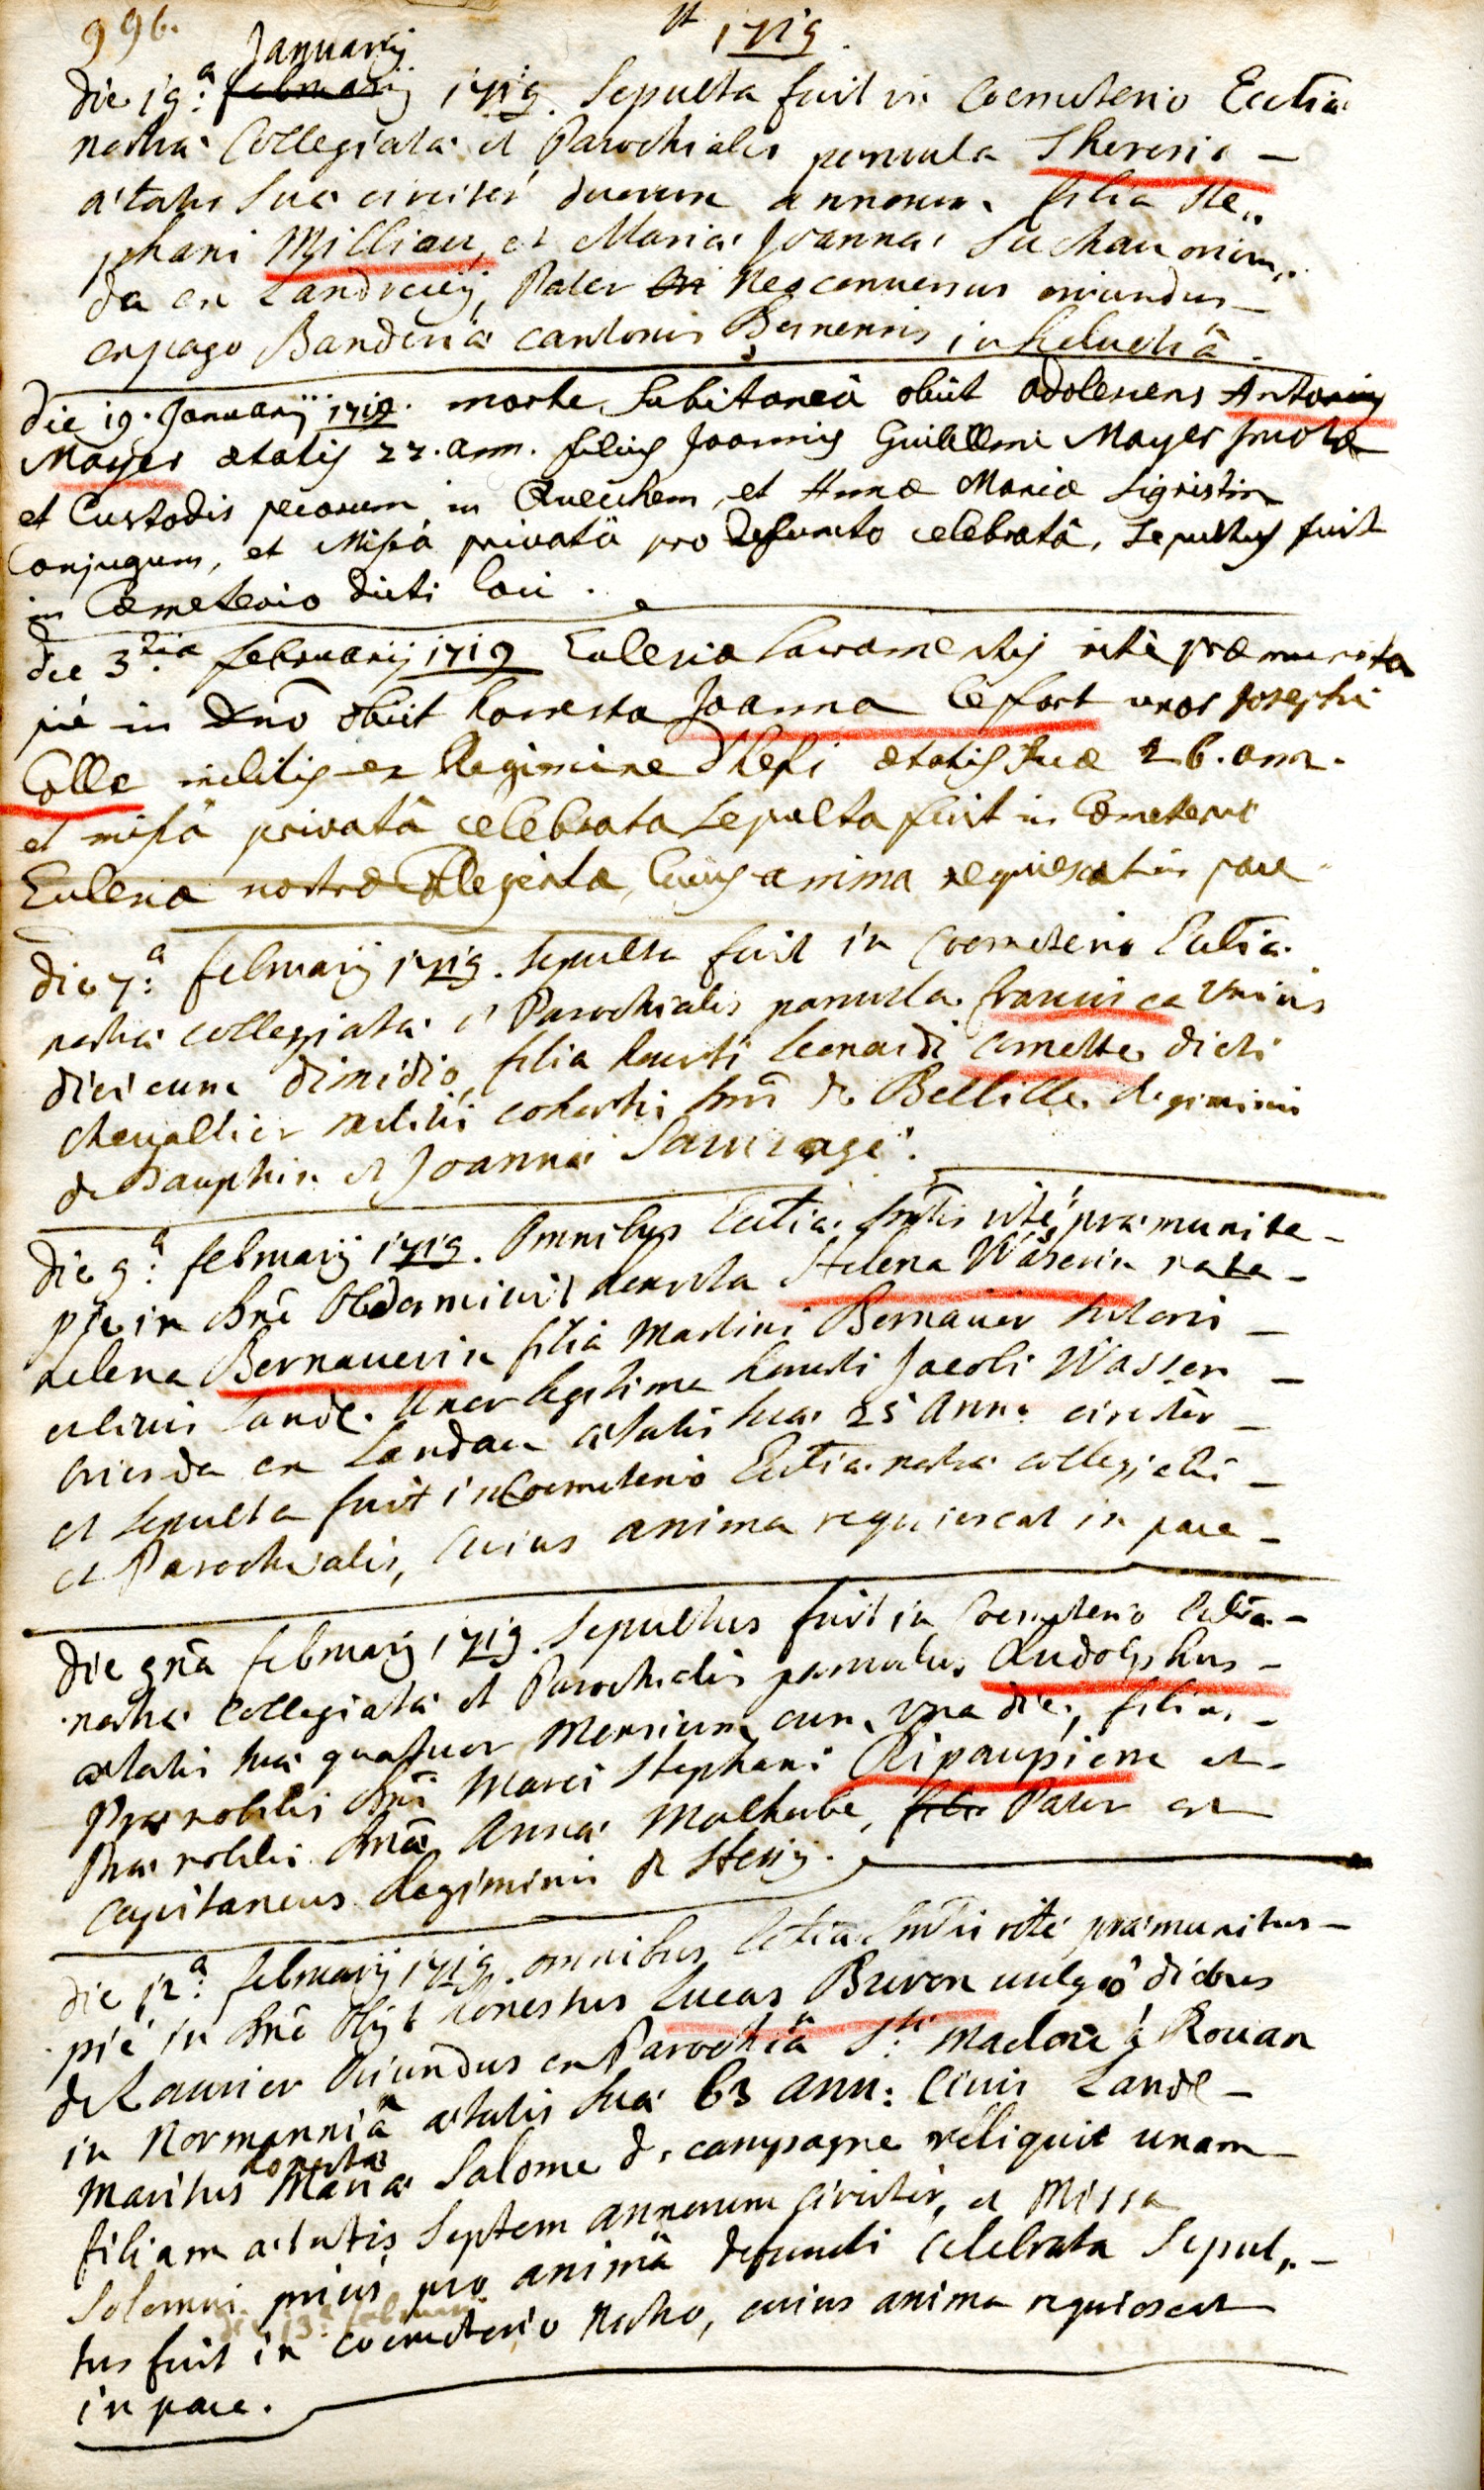 996.
1719.
Januarij
die 19.a februarij 1719. Sepulta fuit in Coemeterio Ecctiæ
nostræ Collegiatæ et Parochialis parvula Theresia –
ætatis suæ circiter duorum annorum filia Ste„
phani Milliau, et Mariæ Joannæ Suchau oriun„
da ex Landrecÿ, Pater Neoconversus oriundus –
ex pago cantonis Bernensis in helvetiâ.
die 19. Januarij 1719. morte Subitaneâ obiit adolescens Antonius
Mayer ætatis 22. ann. filius Joannis Guillelmi Mayer
et Custodis pecorum in Queichem, et Annæ Mariæ Sigristin
Conjugum, et Missâ privatâ pro defuncto celebratâ, Sepultus fuit
in Cœmeterio dicti loci.
die 3.tia februarij 1719 Ecclesiæ Sacramentis ritè præmunita
piè in Dno obiit honesta Joanna le fort uxor Josephi
Colle militis ex Regimine ætatis suæ 26. ann.
et missâ privatâ celebrata Sepulta fuit in Cœmeterio
Ecclesiæ nostræ Collegiatæ, Cuius anima requiescat in pace
die 7.a februarij 1719. Sepulta fuit in Coemeterio Ecctiæ
nostræ collegiatæ et Parochialis parvula francisca unius
diei cum dimidio, filia honesti Leonardi Comette dicti
chevallier militis cohortis Dni de Bellille Regiminis
de Dauphin et Joannæ Sauvage.
die 9.a februarij 1719. Omnibus Ecctiæ Sntis ritè præmunita –
piè in Dnô Obdormivit honesta Helena Wâserin nata –
helena Bernauerin filia Martini Bernauer sutoris –
et civis Land. Uxor legitima honesti Jacobi Wasser –
oriunda ex Landau ætatis suæ 25 Ann: circiter –
et sepulta fuit in Coemeterio Ecctiæ nostræ collegiatæ –
et Parochialis, Cuius anima requiescat in pace –
die 9nâ februarij 1719. Sepultus fuit in Coemeterio Ecctiæ –
nostræ Collegiatæ et Parochialis parvulus Rudolphus –
ætatis suæ quatuor Mensium cum una die, filius –
Prænobilis Dni Marci Stephani Ripaupierre et –
Prænobilis Dnæ Annæ Malherbe, filia Pater est
Capitaneus Regiminis de
die 12.a februarij 1719. omnibus Ecctiæ Sntis ritè præmunitus –
piè in Dnô Obijt honestus Lucas Buron vulgò dictus
de Laurier Oriundus ex Parochiâ Sti Maclou à Rouan
in Normanniâ ætatis suæ 63 ann: Civis Land –
honestæ
Maritus Mariæ Salome de campagne reliquit unam
filiam ætatis Septem annorum circiter, et Missa
Solemni prius pro animâ defuncti Celebrata Sepul„ –
die 13.a februarij
tus fuit in coemeterio nostro, cuius anima requiescat
in pace.